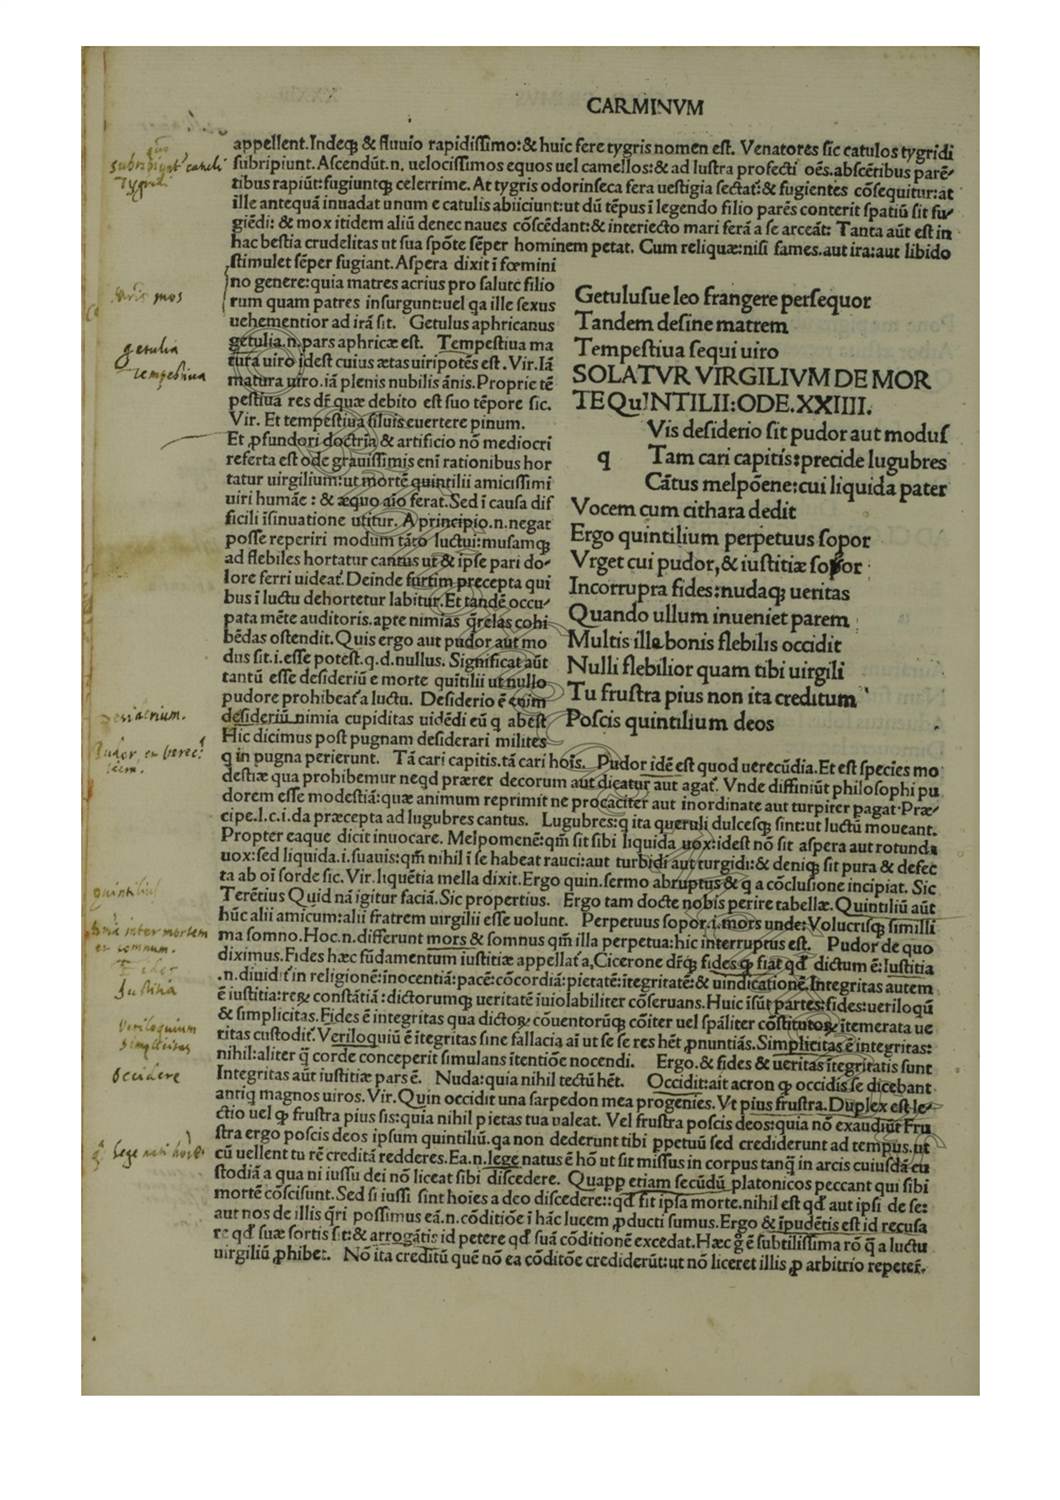 CARMINVM
appellent.Indeq; & fluuio rapidissimo:& huic fere tygris nomen est. Venatores sic catulos tygridi
subripiunt.Ascendūt.n. uelocissimos equos uel camellos:& ad lustra profecti oēs.abscētibus parē/
tibus rapiūt:fugiuntq; celerrime. At tygris odorinseca fera uestigia sectat᷑:& fugientes cōsequitur:at
ille antequā inuadat unum e catulis abiiciunt:ut dū tēpus ī legendo filio parēs conterit spatiū sit fu/
giēdi: & mox itidem aliū denec naues cōscēdant:& interiecto mari ferā a se arceāt: Tanta aūt est in
hac bestia crudelitas ut sua spōte sēper hominem petat. Cum reliquæ:nisi fames.aut ira:aut libido
stimulet sēper fugiant.Aspera dixit ī fœmini
no genere:quia matres acrius pro salute filio
rum quam patres insurgunt:uel qa ille sexus
uehementior ad irā sit. Getulus aphricanus
getulia.n.pars aphricæ est. Tempestiua ma
tura uiro idest cuius ætas uiripotēs est. Vir.Iā
matura uiro.iā plenis nubilis ānis.Proprie tē
pestiua res dr̄ quæ debito est suo tēpore sic.
Vir. Et tempestiua siluis euertere pinum.
Et ꝓfundori doctria & artificio nō mediocri
referta est ode grauissimis enī rationibus hor
tatur uirgilium:ut mortē quintilii amicissimi
uiri humāe : & æquo aīo ferat.Sed ī causa dif
ficili īsinuatione utitur. A principio.n.negat
posse reperiri modum tāto luctui:musamq;
ad flebiles hortatur cantus ut & ipse pari do/
lore ferri uideat᷑.Deinde furtim precepta qui
bus ī luctu dehortetur labitur.Et tandē occu/
pata mēte auditoris.apte nimias q̄relas cohi
bēdas ostendit.Quis ergo aut pudor aut mo
dus sit.i.esse potest.q.d.nullus. Significat aūt
tantū esse desideriū e morte quītilii ut nullo
pudore prohibeat᷑ a luctu. Desiderio ē enim
desideriū nimia cupiditas uidēdi eū q abest
Hic dicimus post pugnam desiderari milites
Getulusue leo frangere persequor
Tandem desine matrem
Tempestiua sequi uiro
SOLATVR VIRGILIVM DE MOR
TE QuINTILII:ODE.XXIIII.
Vis desiderio sit pudor aut modus
q Tam cari capitis:precide lugubres
Cātus melpōene:cui liquida pater
Vocem cum cithara dedit
Ergo quintilium perpetuus sopor
Vrget cui pudor,& iustitiæ soror
Incorrupta fides:nudaq; ueritas
Quando ullum inueniet parem
Multis ille bonis flebilis occidit
Nulli flebilior quam tibi uirgili
Tu frustra pius non ita creditum
Poscis quintilium deos
q in pugna perierunt. Tā cari capitis.tā cari hoīs. Pudor idē est quod uerecūdia.Et est species mo
destiæ qua prohibemur neqd præter decorum aut dicatur aut agat᷑. Vnde diffiniūt philosophi pu
dorem esse modestiā:quæ animum reprimit ne procaciter aut inordinate aut turpiter pagat.Præ/
cipe.I.c.i.da præcepta ad lugubres cantus. Lugubres:q ita queruli dulcesq; sint:ut luctū moueant.
Propter eaque dicit inuocare. Melpomenē:qm̄ sit sibi liquida uox:idest nō sit aspera aut rotunda
uox:sed liquida.i.suauis:qm̄ nihil ī se habeat rauci:aut turbidi aut turgidi:& deniq; sit pura & defec
ta ab oī sorde sic.Vir.liquētia mella dixit.Ergo quin.sermo abruptus & q a cōclusione incipiat. Sic
Terētius Quid nā īgitur faciā.Sic propertius. Ergo tam docte nobis perire tabellæ.Quintiliū aūt
hūc alii amicum:alii fratrem uirgilii esse uolunt. Perpetuus sopor.i.mors unde:Volucrisq; simillī
ma somno.Hoc.n.differunt mors & somnus qm̄ illa perpetua:hic interruptus est. Pudor de quo
diximus.Fides hæc fūdamentum iustitiæ appellat᷑ a,Cicerone dr̄q; fides ꝙ fiat qd̄ dictum ē:Iustitia
.n.diuidit᷑ in religionē:inocentiā:pacē:cōcordiā:pietatē:ītegritatē:& uindicationē.Integritas autem
ē iustitia:reꝝ constātiā:dictorumq; ueritatē īuiolabiliter cōseruans.Huic īsūt partes:fides:ueriloqū
& simplicitas.Fides ē integritas qua dictoꝝ cōuentorūq; cōiter uel spāliter cōstitutoꝝ ītemerata ue
ritas custodit᷑.Veriloquiū ē ītegritas sine fallacia aī ut se se res hēt ꝓnuntiās.Simplicitas ē integritas:
nihil:aliter q̄ corde conceperit simulans ītentiōe nocendi. Ergo.& fides & ueritas ītegritatis sunt
Integritas aūt iustitiæ pars ē. Nuda:quia nihil tectū hēt. Occidit:ait acron ꝙ occidisse dicebant
antiq magnos uiros.Vir.Quin occidit una sarpedon mea progenies.Vt pius frustra.Duplex est le/
ctio uel ꝙ frustra pius sis:quia nihil pietas tua ualeat. Vel frustra poscis deos:quia nō exaudiūt Fru
stra ergo poscis deos ipsum quintiliū.qa non dederunt tibi ꝑpetuū sed crediderunt ad tempus.ut
cū uellent tu rē creditā redderes.Ea.n.lege natus ē hō ut sit missus in corpus tanq̄ in arcis cuiusdā cu
stodiā a qua ni iussu dei nō liceat sibi discedere. Quapp etiam secūdū platonicos peccant qui sibi
mortē cōsciscunt.Sed si iussi sint hoīes a deo discedere::qd̄ sit ipsa morte.nihil est qd̄ aut ipsi de se:
aut nos de illis q̄ri possimus eā.n.cōditiōe ī hāc lucem ꝓducti sumus.Ergo & īpudētis est id recusa
re qd̄ suæ sortis sit:& arrogātis id petere qd̄ suā cōditionē excedat.Hæc ḡ ē subtilissima rō q̄ a luctu
uirgiliū ꝓhibet. Nō ita creditū quē nō ea cōditōe crediderūt:ut nō liceret illis ꝓ arbitrio repeter̄.
subripiunt catuli
Tygri
mos
getulia
Tempestiua
desiderium.
Pudor
quintilius
inter mortem
et somnum.
Fides
Justitia
Veriloquium
Simplicitas
Occidere
Lege